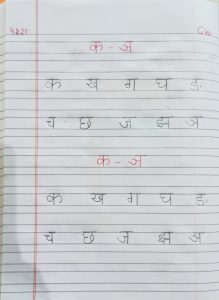 क - ञ
क ख ग घ ङ
च छ ज झ ञ
क - ञ
क ख ग घ ङ
च छ ज झ ञ